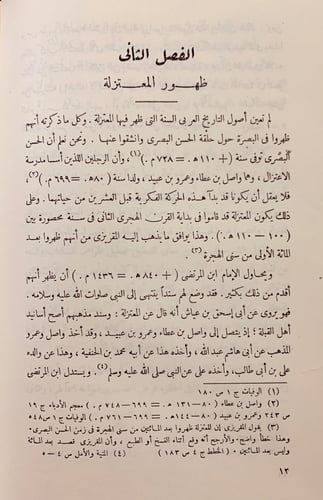 الفصل الثانى
ظهور المعتزلة
لم تعين أصول التاريخ العربى السنة التى ظهر فيها المعتزلة. وكل ما ذكرته أنهم
ظهروا فى البصرة حول حلقة الحسن البصرى وانشقوا عنها. ونحن نعلم أن الحسن
البصرى توفى سنة (+ ١١٠ هـ. = ٧٢٨ م.) (١)، وأن الرجلين اللذين أسسا مدرسة
الاعتزال، وهما واصل بن عطاء وعمرو بن عبيد، ولدا سنة (٨٠ هـ. = ٦٩٩ م.) (٢)
فلا يعقل أن يكونا قد بدآ هذه الحركة الفكرية قبل العشرين من حياتهما. وعلى
ذلك يكون المعتزلة قد قاموا فى بداية القرن الهجرى الثانى فى سنة محصورة بين
(١٠٠ — ١١٠ هـ.). وهذا يوافق ما يذهب إليه المقريزى من أنهم ظهروا بعد
المائة الأولى من سنى الهجرة (٣)
ويحاول الإمام ابن المرتضى (+ ٨٤٠ هـ. = ١٤٣٦ م.) أن يظهر أنهم
أقدم من ذلك بكثير. فقد وضع لهم سنداً ينتهى إلى النبى صلوات الله عليه وسلامه.
فهو يروى عن أبى إسحق بن عياش أنه قال عن المعتزلة: وسند مذهبهم أصح أسانيد
أهل القبلة؛ إذ يتصل إلى واصل بن عطاء وعمرو بن عبيد، وقد أخذ واصل وعمرو
المذهب عن أبى هاشم عبد الله، وأخذه هذا عن أبيه محمد بن الحنفية، وهذا عن والده
على بن أبى طالب، وأخذه على عن النبى صلى الله عليه وسلم (٤). ويستدل ابن المرتضى
(١) الوفيات ج ١ ص ١٨٠
(٢) واصل بن عطاء (٨٠ — ١٣١ هـ. = ٦٩٩ — ٧٤٨ م.) معجم الأدباء ج ١٩
ص ٢٤٣ وعمرو بن عبيد (٨٠ — ١٤٤ هـ. = ٦٩٩ — ٧٦١ م.) الوفيات ج ١ ص ٥٤٨
(٣) يقول المقريزى إن المعتزلة ظهروا بعد المائتين من سنى الهجرة فى زمن الحسن البصرى.
وهذا خطأ واضح. والأرجح أنه وقع أثناء النسخ أو الطبع، وأن المقريزى قصد بعد المائة
وليس بعد المائتين. (الخطط ج ٤ ص ١٨٣) (٤) المنية والأمل ص ٤ — ٥
١٢